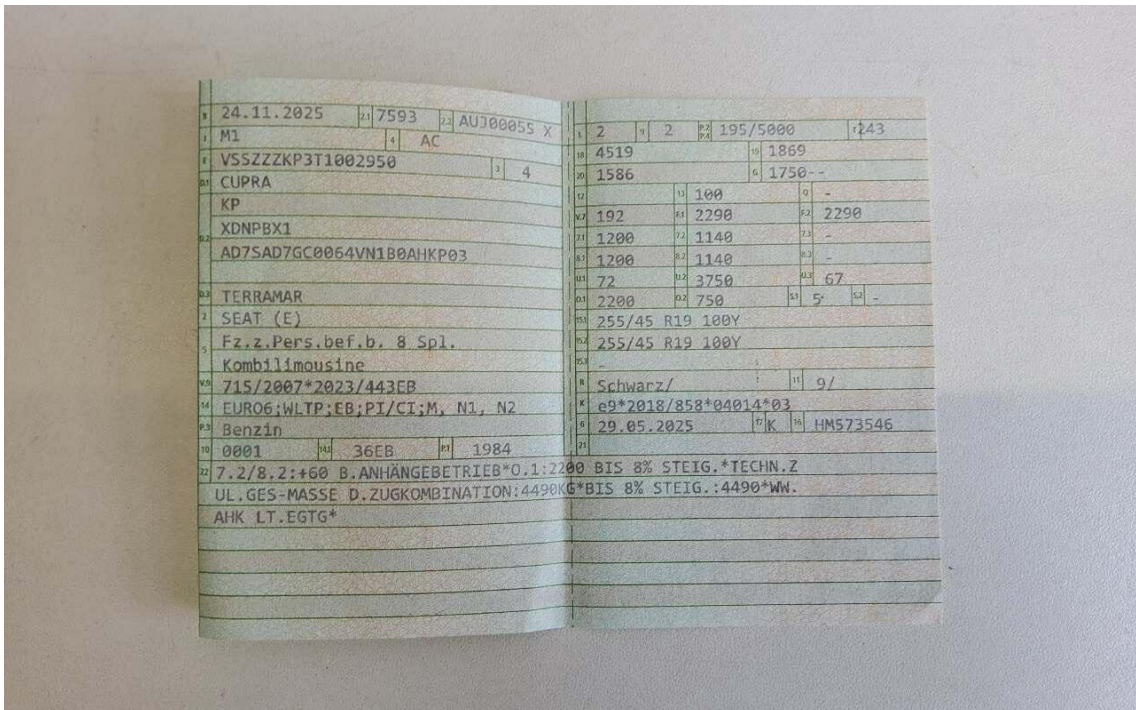 B 24.11.2025 2.1 7593 2.2 AUJ00055 X
J M1 4 AC
E VSSZZZKP3T1002950 3 4
D.1 CUPRA
KP
D.2 XDNPBX1
AD7SAD7GC0064VN1B0AHKP03
D.3 TERRAMAR
2 SEAT (E)
5 Fz.z.Pers.bef.b. 8 Spl.
Kombilimousine
V.9 715/2007*2023/443EB
14 EURO6;WLTP;EB;PI/CI;M, N1, N2
P.3 Benzin
10 0001 14.1 36EB P.1 1984
L 2 9 2 P.2 P.4 195/5000 T 243
18 4519 19 1869
20 1586 G 1750--
12 13 100 Q -
V.7 192 F.1 2290 F.2 2290
7.1 1200 7.2 1140 7.3 -
8.1 1200 8.2 1140 8.3 -
U.1 72 U.2 3750 U.3 67
O.1 2200 O.2 750 S.1 5 S.2 -
15.1 255/45 R19 100Y
15.2 255/45 R19 100Y
15.3 -
R Schwarz/ 11 9/
K e9*2018/858*04014*03
6 29.05.2025 17 K 16 HM573546
21
22 7.2/8.2:+60 B.ANHÄNGEBETRIEB*O.1:2200 BIS 8% STEIG.*TECHN.Z
UL.GES-MASSE D.ZUGKOMBINATION:4490KG*BIS 8% STEIG.:4490*WW.
AHK LT.EGTG*